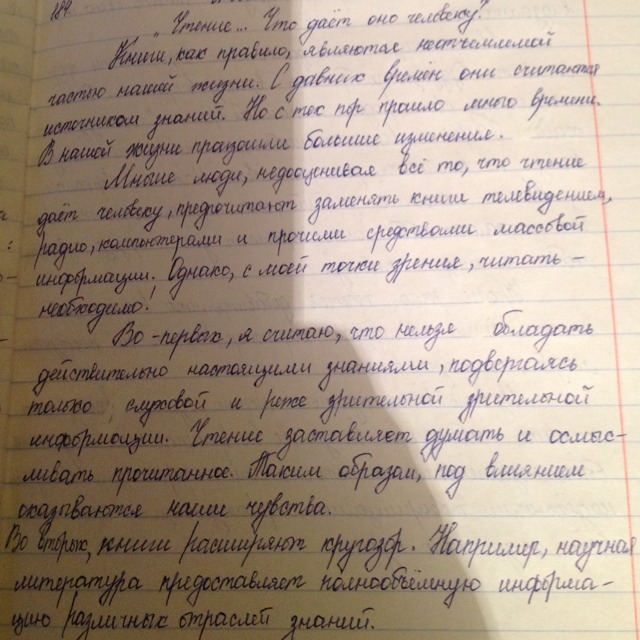 184.
„Чтение... Что даёт оно человеку?"
Книги, как правило, являются неотъемлемой
частью нашей жизни. С давних времён они считаются
источником знаний. Но с тех пор прошло много времени.
В нашей жизни произошли большие изменения.
Многие люди, недооценивая всё то, что чтение
даёт человеку, предпочитают заменять книги телевидением,
радио, компьютерами и прочими средствами массовой
информации. Однако, с моей точки зрения, читать –
необходимо!
Во-первых, я считаю, что нельзя обладать
действительно настоящими знаниями, подвергаясь
только слуховой и реже зрительной зрительной
информации. Чтение заставляет думать и осмыс-
ливать прочитанное. Таким образом, под влиянием
оказываются наши чувства.
Во вторых, книги расширяют кругозор. Например, научная
литература предоставляет полнообъёмную информа-
цию различных отраслей знаний.